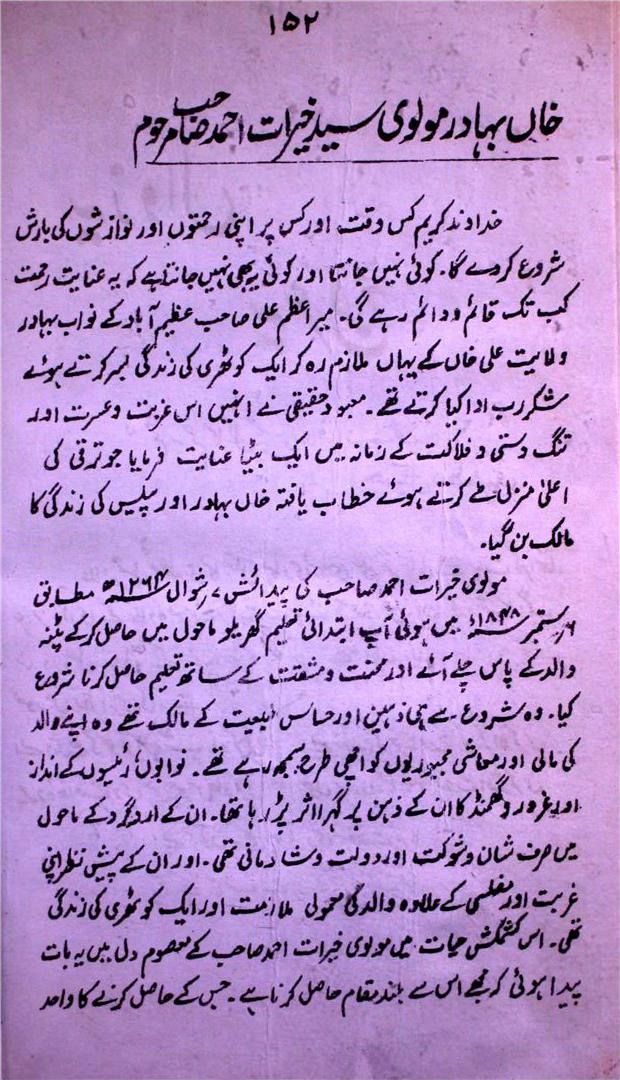 ۱۵۲
خاں بہادر مولوی سید خیرات احمد صاحب مرحوم
خداوند کریم کس وقت اور کس پر اپنی رحمتوں اور نوازشوں کی بارش
شروع کر دے گا۔ کوئی نہیں جانتا اور کوئی یہ بھی نہیں جانتا ہے کہ یہ عنایت رحمت
کب تک قائم و دائم رہے گی۔ میر اعظم علی صاحب عظیم آباد کے نواب بہادر
ولایت علی خاں کے یہاں ملازم رہ کر ایک کوٹھری کی زندگی بسر کرتے ہوئے
شکر رب ادا کیا کرتے تھے۔ معبود حقیقی نے انہیں اس غربت و عسرت اور
تنگ دستی و فلاکت کے زمانہ میں ایک بیٹا عنایت فرمایا جو ترقی کی
اعلیٰ منزل طے کرتے ہوئے خطاب یافتہ خاں بہادر اور پیلیس کی زندگی کا
مالک بن گیا۔
مولوی خیرات احمد صاحب کی پیدائش ۷ر شوال ۱۲۶۴ھ مطابق
ستمبر ۱۸۴۸ء میں ہوئی آپ ابتدائی تعلیم گھریلو ماحول میں حاصل کر کے پٹنہ
والد کے پاس چلے آئے اور محنت و مشقت کے ساتھ تعلیم حاصل کرنا شروع
کیا۔ وہ شروع سے ہی ذہین اور حساس طبیعت کے مالک تھے وہ اپنے والد
کی مالی اور معاشی مجبوریوں کو اچھی طرح سمجھ رہے تھے۔ نوابوں، رئیسوں کے انداز
اور غرور و گھمنڈ کا ان کے ذہن پر گہرا اثر پڑ رہا تھا۔ ان کے ارد گرد کے ماحول
میں صرف شان و شوکت اور دولت و شادمانی تھی۔ اور ان کے پیش نظر اپنی
غربت اور مفلسی کے علاوہ والد کی معمولی ملازمت اور ایک کوٹھری کی زندگی
تھی۔ اس کشمکش حیات میں مولوی خیرات احمد صاحب کے معصوم دل میں یہ بات
پیدا ہوئی کہ مجھے اس سے بلند مقام حاصل کرنا ہے۔ جس کے حاصل کرنے کا واحد